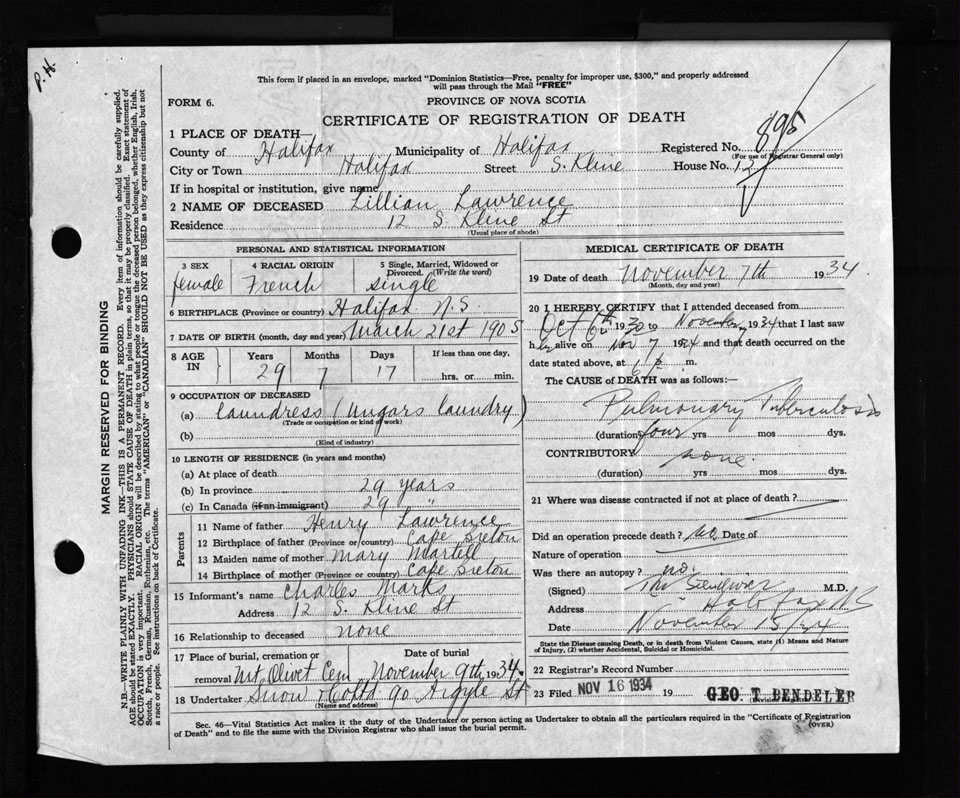 P. H.
This form if placed in an envelope, marked "Dominion Statistics—Free, penalty for improper use, $300," and properly addressed
will pass through the Mail "FREE"
FORM 6.
PROVINCE OF NOVA SCOTIA
CERTIFICATE OF REGISTRATION OF DEATH
1 PLACE OF DEATH—
Registered No. 895
(For use of Registrar General only)
County of Halifax Municipality of Halifax
City or Town Halifax Street S. Kline House No. 12
If in hospital or institution, give name
2 NAME OF DECEASED Lillian Lawrence
Residence 12 S Kline St
(Usual place of abode)
PERSONAL AND STATISTICAL INFORMATION
3 SEX female
4 RACIAL ORIGIN French
5 Single, Married, Widowed or
Divorced. (Write the word)
single
6 BIRTHPLACE (Province or country) Halifax N.S
7 DATE OF BIRTH (month, day and year) March 21st 1905
8 AGE IN
Years Months Days If less than one day,
29 7 17 hrs. or min.
9 OCCUPATION OF DECEASED
(a) Laundress (Ungars Laundry)
(Trade or occupation or kind of work)
(b)
(Kind of industry)
10 LENGTH OF RESIDENCE (in years and months)
(a) At place of death
(b) In province 29 years
(c) In Canada (if an immigrant) 29 "
Parents
11 Name of father Henry Lawrence
12 Birthplace of father (Province or country) Cape Breton
13 Maiden name of mother Mary Martell
14 Birthplace of mother (Province or country) Cape Breton
15 Informant's name Charles Marks
Address 12 S. Kline St
16 Relationship to deceased none
17 Place of burial, cremation or
removal Mt Olivet Cem
Date of burial
November 9th, 1934
18 Undertaker Snow & Co Ltd 90 Argyle St
(Name and address)
MEDICAL CERTIFICATE OF DEATH
19 Date of death November 7th 1934
(Month, day and year)
20 I HEREBY CERTIFY that I attended deceased from
Oct 6th 1930 to November 1934 that I last saw
her alive on Nov 7 1934 and that death occurred on the
date stated above, at m.
The CAUSE of DEATH was as follows:—
Pulmonary Tuberculosis
(duration) four yrs mos dys.
CONTRIBUTORY none.
(duration) yrs mos dys.
21 Where was disease contracted if not at place of death?
Did an operation precede death? no. Date of
Nature of operation
Was there an autopsy? no.
(Signed) M.D.
Address Halifax N S
Date November 15/34
State the Disease causing Death, or in death from Violent Causes, state (1) Means and Nature
of Injury, (2) whether Accidental, Suicidal or Homicidal.
22 Registrar's Record Number
23 Filed NOV 16 1934 19 GEO T. BENDELER
Sec. 46—Vital Statistics Act makes it the duty of the Undertaker or person acting as Undertaker to obtain all the particulars required in the "Certificate of Registration
of Death" and to file the same with the Division Registrar who shall issue the burial permit.
(OVER)
MARGIN RESERVED FOR BINDING
N.B.—WRITE PLAINLY WITH UNFADING INK—THIS IS A PERMANENT RECORD. Every item of information should be carefully supplied.
AGE should be stated EXACTLY. PHYSICIANS should STATE CAUSE OF DEATH in plain terms, so that it may be properly classified. Exact statement of
OCCUPATION is very important. RACIAL ORIGIN will be described by stating to what people or tongue the deceased person belonged, whether English, Irish,
Scotch, French, German, Russian, Ruthenian, etc. The terms "AMERICAN" or "CANADIAN" SHOULD NOT BE USED as they express citizenship but not
a race or people. See instructions on back of Certificate.